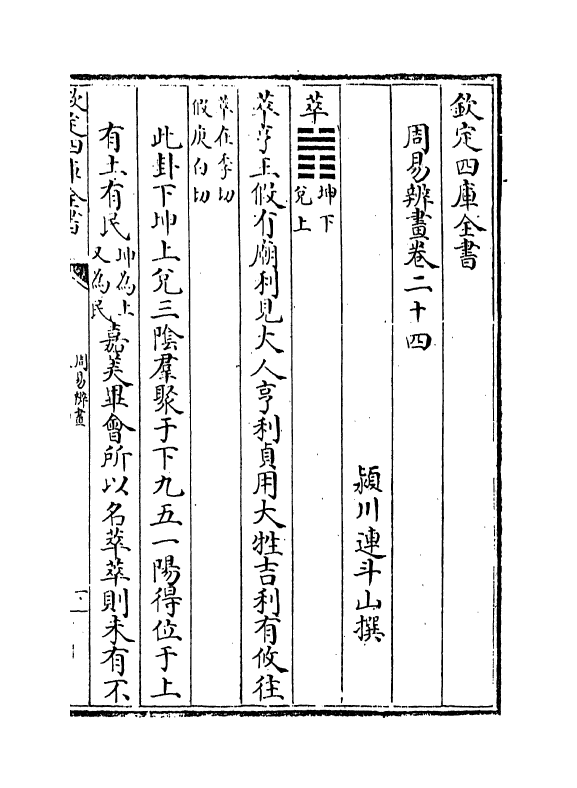 欽定四庫全書
周易辨畫卷二十四
潁川連斗山撰
萃䷬坤下
兌上
萃亨王假有廟利見大人亨利貞用大牲吉利有攸往
萃在季切
假庚白切
此卦下坤上兌三陰羣聚于下九五一陽得位于上
有土有民坤為土又為民嘉美畢會所以名萃萃則未有不
欽定四庫全書
周易辨畫
一